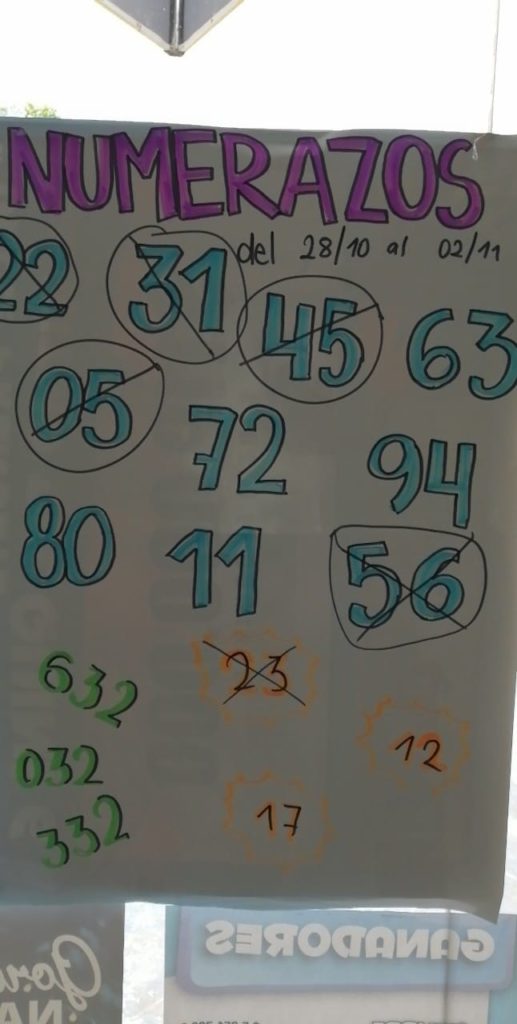 NUMERAZOS
del 28/10 al 02/11
22 31 45 63
05 72 94
80 11 56
632 23
032 12
332 17
GANADORES